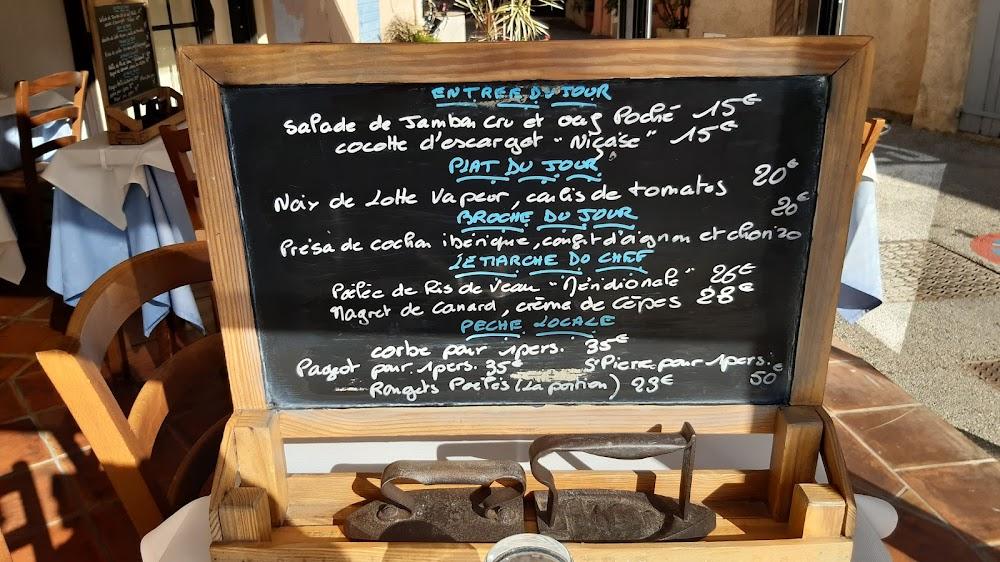 ENTREE DU JOUR
Salade de Jambon cru et oeuf Poché 15€
cocotte d'escargot "Niçaise" 15€
PLAT DU JOUR
Noix de Lotte Vapeur, coulis de tomates 20€
BROCHE DU JOUR
Présa de cochon ibérique, confit d'oignon et chorizo 20€
LE MARCHE DU CHEF
Poêlée de Ris de Veau "Méridionale" 26€
Magret de Canard, crème de cèpes 28€
PECHE LOCALE
corbe pour 1pers. 35€
Pagot pour 1pers. 35€ St Pierre pour 1pers. 50€
Rougets Poêlés (La portion) 23€